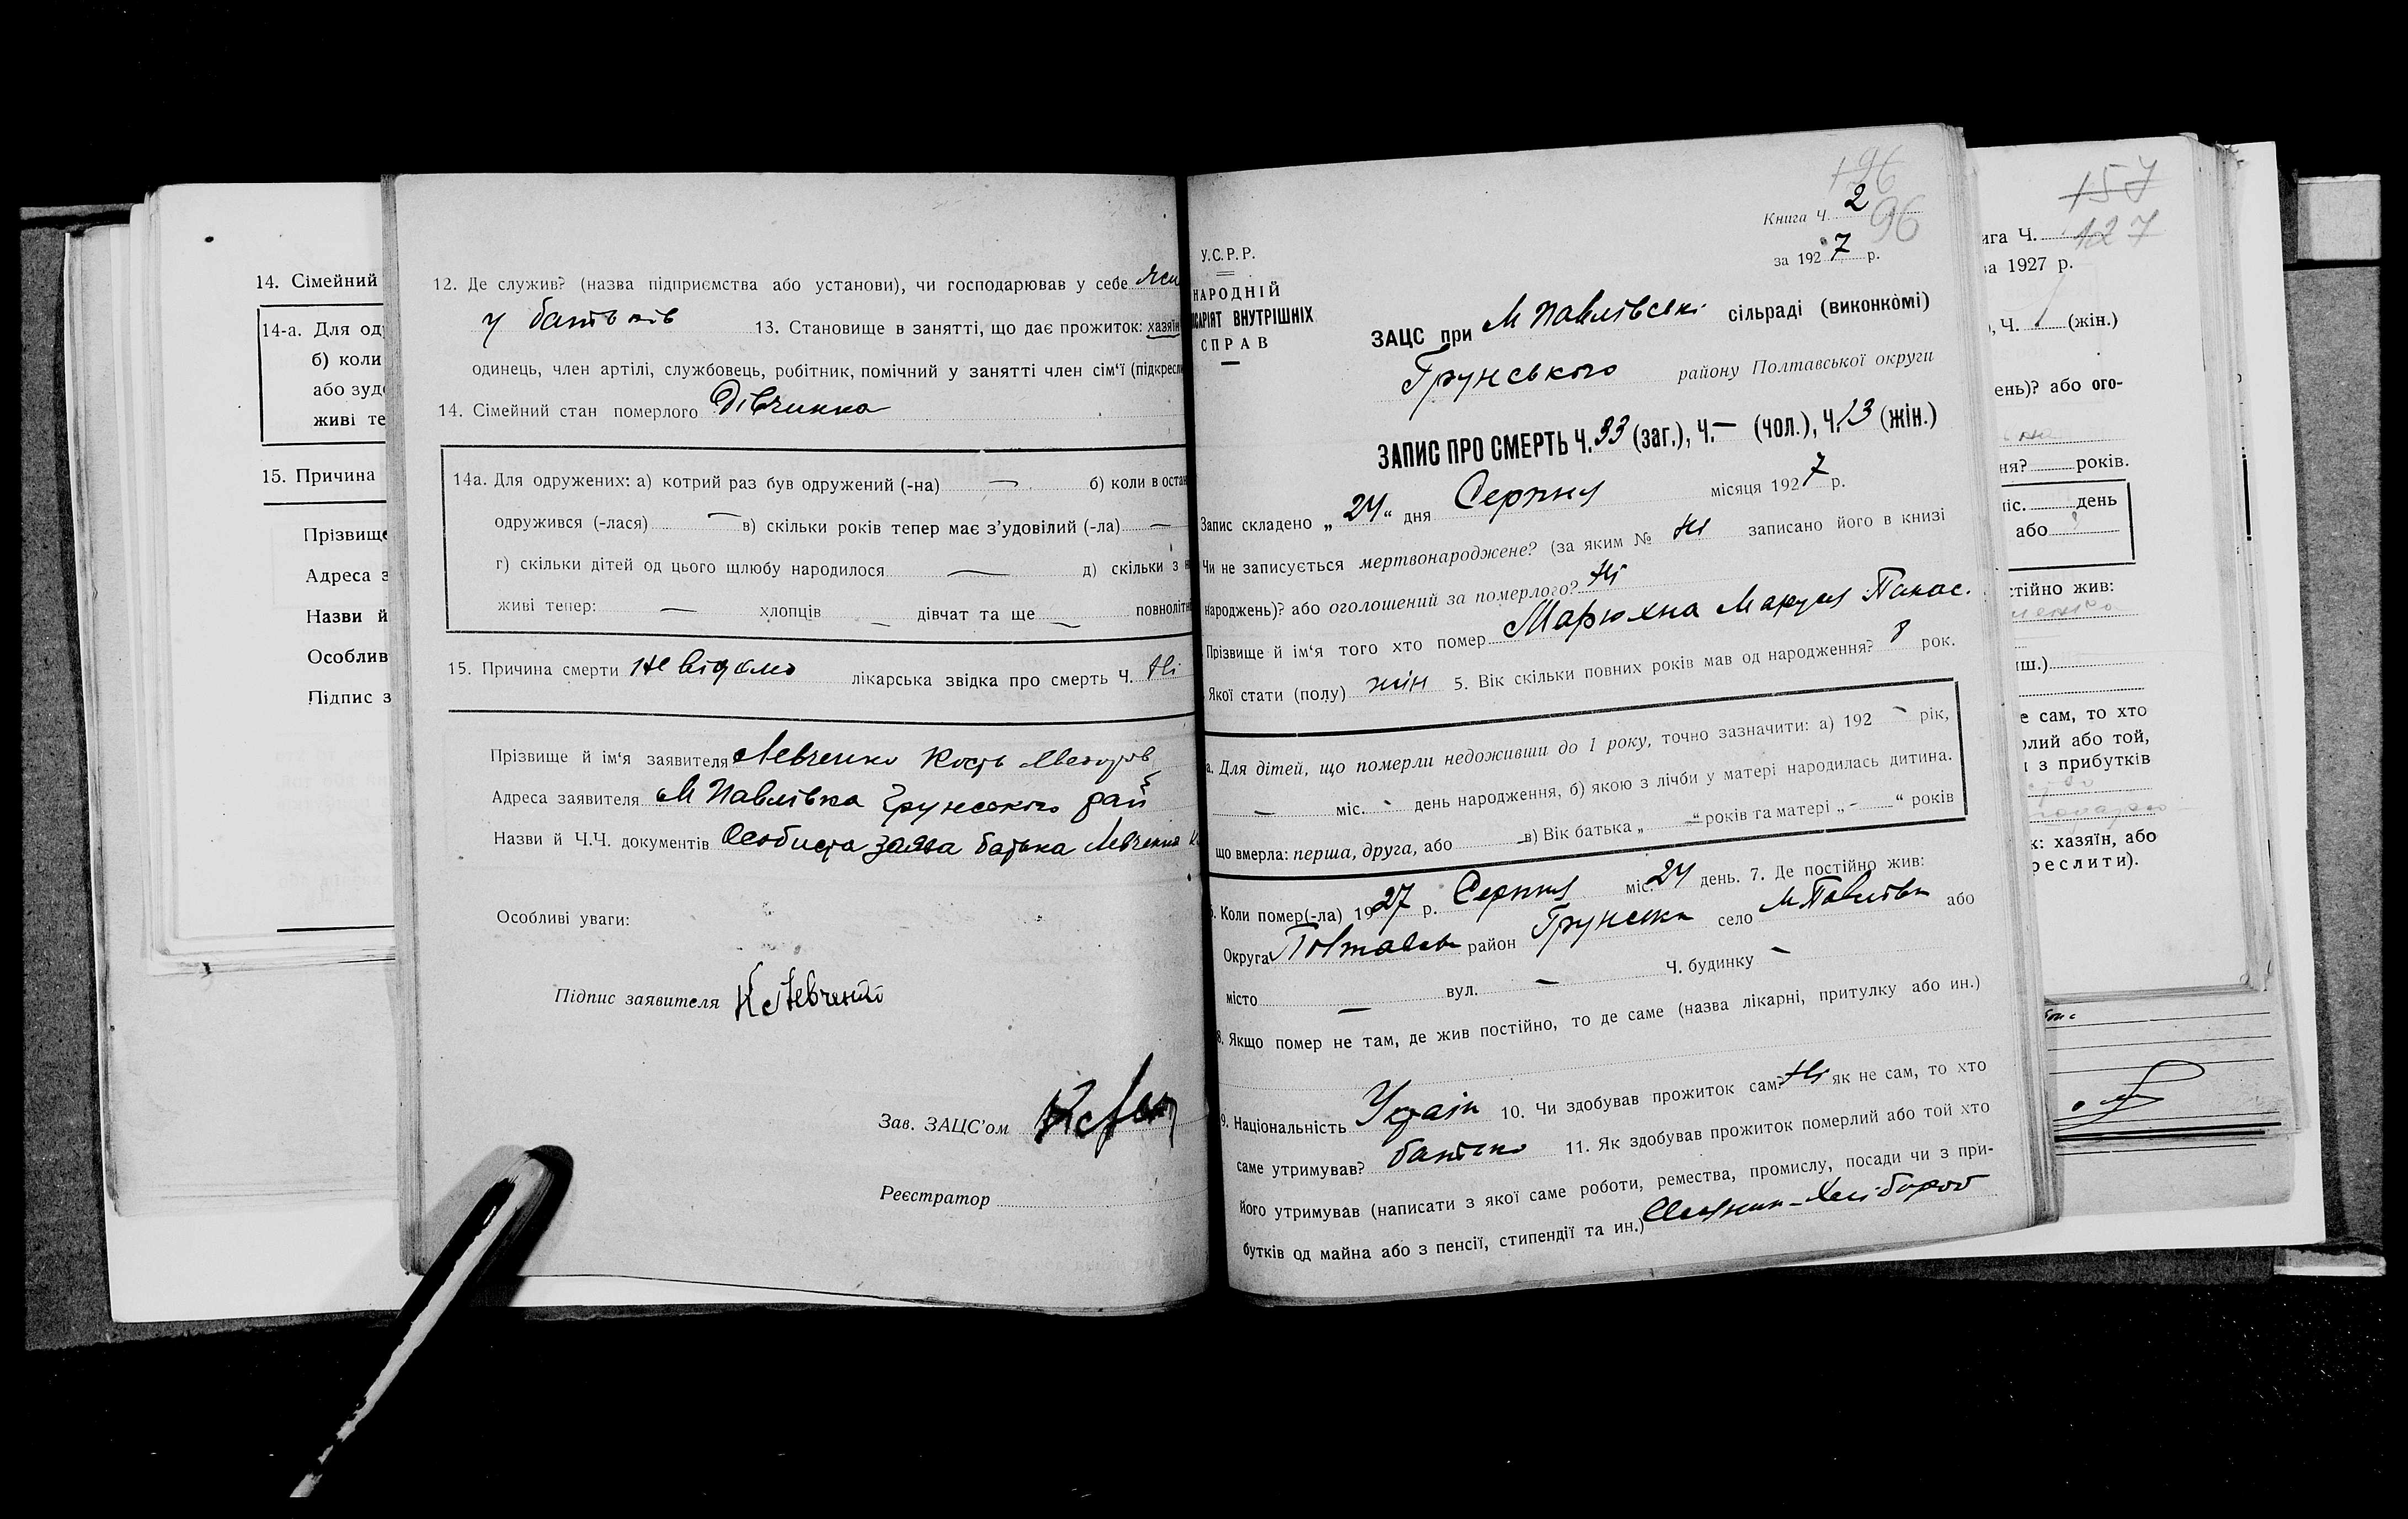 14. Сімейний
14-а. Для од
б) коли
або зуд
живі те
15. Причина
Прізвище
Адреса з
Назви й
Особлив
Підпис з
12. Де служив? (назва підприємства або установи), чи господарював у себе
у батьків 13. Становище в занятті, що дає прожиток: хазяїн
одинець, член артілі, службовець, робітник, помічний у занятті член сім'ї (підкресл
14. Сімейний стан померлого Дівчинка
14а. Для одружених: а) котрий раз був одружений (-на) — б) коли в остан
одружився (-лася) — в) скільки років тепер має з'удовілий (-ла) —
г) скільки дітей од цього щлюбу народилося — д) скільки з н
живі тепер: — хлопців — дівчат та ще — повноліт
15. Причина смерти Не відомо лікарська звідка про смерть Ч. Ні
Прізвище й ім'я заявителя Левченко Кость
Адреса заявителя М Павлівка Грунського рай
Назви й Ч.Ч. документів Особиста заява батька Левченка К
Особливі уваги:
Підпис заявителя К Левченко
Зав. ЗАЦС'ом
Реєстратор
196
Книга Ч. 2
96
за 1927 р.
У.С.Р.Р.
НАРОДНІЙ
САРІЯТ ВНУТРІШНІХ
СПРАВ
ЗАЦС при М Павлівські сільраді (виконкомі)
Грунського району Полтавської округи
ЗАПИС ПРО СМЕРТЬ Ч. 33 (заг.), Ч. — (чол.), Ч. 13 (жін.)
Запис складено „24“ дня Серпня місяця 1927 р.
Чи не записується мертвонароджене? (за яким № Ні записано його в книзі
народжень)? або оголошений за померлого? Ні
Прізвище й ім'я того хто помер Марюхна Маруся Панас.
Якої стати (полу) жін 5. Вік скільки повних років мав од народження? 8 рок.
а. Для дітей, що померли недоживши до 1 року, точно зазначити: а) 192 - рік,
— міс. - день народження, б) якою з лічби у матері народилась дитина.
що вмерла: перша, друга, або — в) Вік батька „ — “ років та матері „ - “ років
6. Коли помер(-ла) 1927 р. Серпня міс. 24 день. 7. Де постійно жив:
Округа Полтавськ район Грунськи село М Павлівка або
місто — вул. — Ч. будинку —
8. Якщо помер не там, де жив постійно, то де саме (назва лікарні, притулку або ин.)
9. Національність Україн 10. Чи здобував прожиток сам? Ні як не сам, то хто
саме утримував? батько 11. Як здобував прожиток померлий або той хто
його утримував (написати з якої саме роботи, ремества, промислу, посади чи з при-
бутків од майна або з пенсії, стипендії та ин.) Селянин-Хлібороб
157
ига Ч. 127
за 1927 р.
, Ч. (жін.)
ень)? або ого-
ня? років.
міс. день
або
стійно жив:
иш.)
е сам, то хто
рлий або той,
и з прибутків
к: хазяїн, або
реслити).